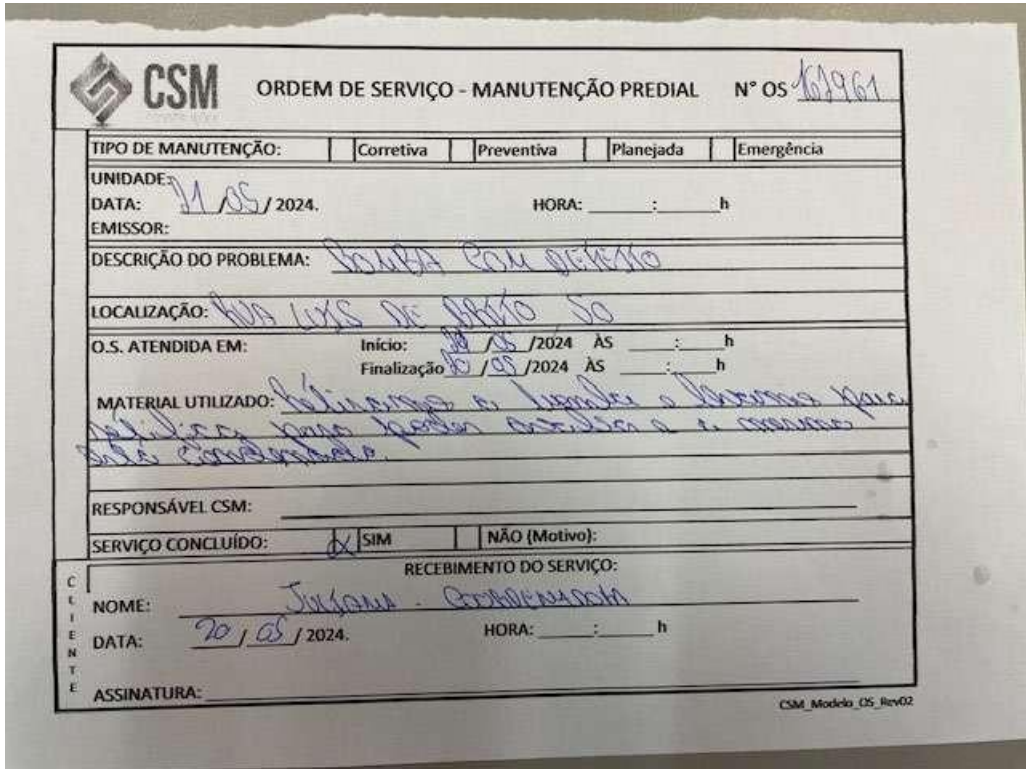 CSM ORDEM DE SERVIÇO - MANUTENÇÃO PREDIAL N° OS 167961
TIPO DE MANUTENÇÃO: Corretiva Preventiva Planejada Emergência
UNIDADE:
DATA: 21/05/2024. HORA: ____:____h
EMISSOR:
DESCRIÇÃO DO PROBLEMA: BOMBA COM DEFEITO
LOCALIZAÇÃO: RUA LUIS DE BRITO 50
O.S. ATENDIDA EM: Início: /05/2024 ÀS ____:____h
Finalização /05/2024 ÀS ____:____h
MATERIAL UTILIZADO: Retiramos a bomba e levamos para
para poder a mesma
RESPONSÁVEL CSM:
SERVIÇO CONCLUÍDO: X SIM NÃO (Motivo):
RECEBIMENTO DO SERVIÇO:
CLIENTE
NOME: JULIANA - COORDENADORA
DATA: 20/05/2024. HORA: ____:____h
ASSINATURA:
CSM_Modelo_OS_Rev02